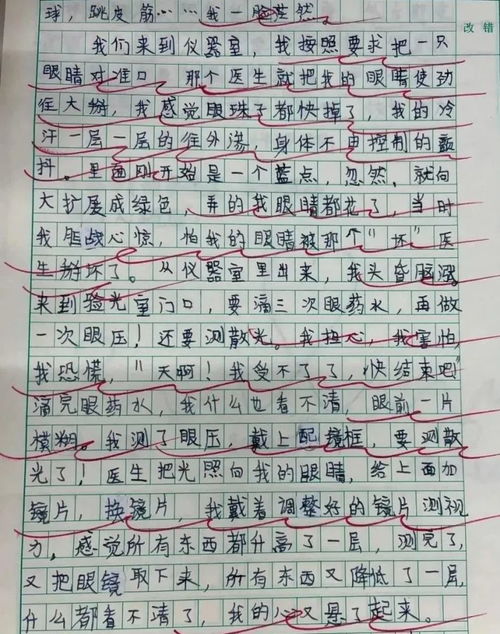 球，跳皮筋……我一脸茫然
改错
我们来到仪器室，我按照要求把一只
眼睛对准口，那个医生就把我的眼睛使劲
往大掰，我感觉眼珠子都快掉了，我的冷
汗一层一层的往外渗，身体不由控制的颤
抖。里面刚开始是一个蓝点，忽然，就向
大扩展成绿色，弄的我眼睛都花了，当时
我胆战心惊，怕我的眼睛被那个"坏"医
生掰坏了。从仪器室里出来，我头昏脑涨。
来到验光室门口，要滴三次眼药水，再做
一次眼压！还要测散光。我担心，我害怕，
我恐慌，"天啊！我受不了了，快结束吧"
滴完眼药水，我什么也看不清，眼前一片
模糊。我测了眼压，戴上配镜框，要测散
光了！医生把光照向我的眼睛，给上面加
镜片，换镜片，我戴着调整好的镜片测视
力，感觉所有东西都升高了一层，测完了，
又把眼镜取下来，所有东西又降低了一层，
什么都看不清了，我的心又悬了起来。